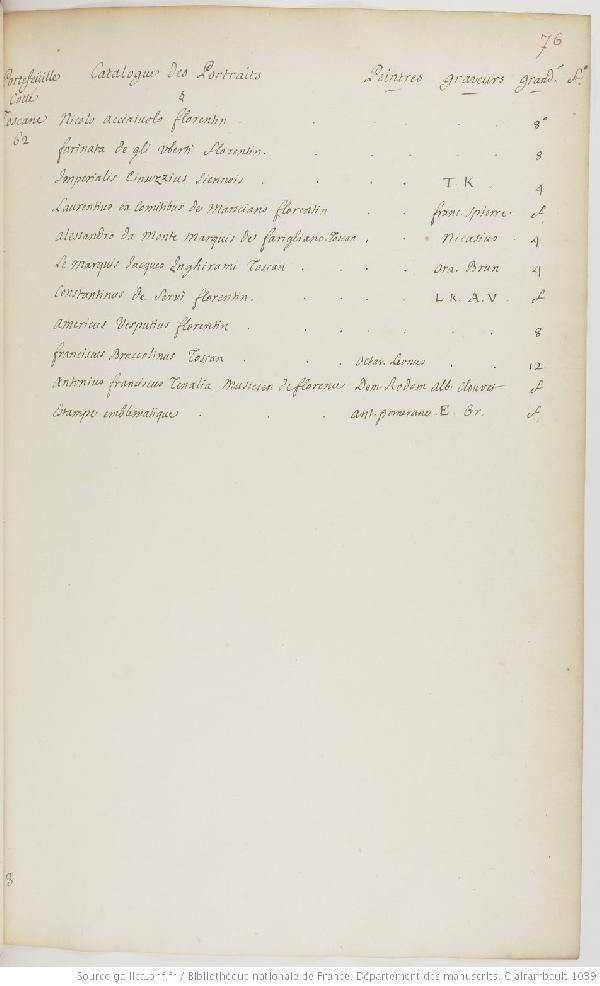 76
Portefeuille Catalogue des Portraits Peintres graveurs grand.r f.o
Cotté &
Toscane Nicolo acciaiuolo florentin . . . . . 8°
62
farinata de gli Uberti florentin. . . . . . 8
Imperialis Cinuzzius siennois . . . . T. K. 4
Laurentius ex Comitibus de Marsciano florentin . . franc. Spierre f.
alessandro da Monte Marquis de farigliano. Toscan . . Nicasius . 4
Le Marquis Jacques Inghirami Toscan . . . . Ora. Brun 4
Constantinus de Servi florentin. . . . . L. K. A. V. f.
americus Vesputius florentin . . . . . . 8
franciscus Braccolinus Toscan . . . octav. Leonus . . 12
Antonius franciscus Tenalia Musicien de florence Dom. Rodom alb. Clouvet f.
Estampe emblematique . . . ant. pomeranc. E. Gr. f.
8
Source gallica.bnf.fr / Bibliothèque nationale de France. Département des manuscrits. Clairambault 1039